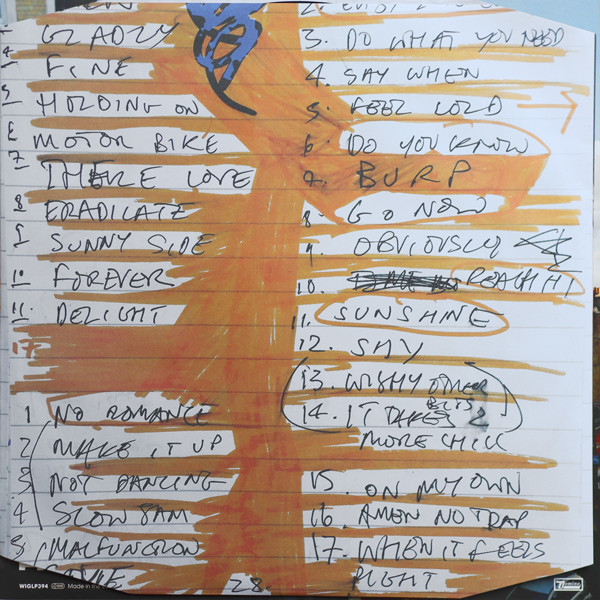 GLADLY
FINE
HOLDING ON
MOTOR BIKE
7 THERE LOVE
8 ERADICATE
9 SUNNY SIDE
10 FOREVER
11. DELIGHT
17.
1 NO ROMANCE
2 MAKE IT UP
3 NOT DANCING
4 SLOW JAM
5 MALFUNCTION
28.
2.
3. DO WHAT YOU NEED
4. SAY WHEN
5. FEEL COLD
6. DO YOU KNOW
7. BURP
8. GO NOW
9. OBVIOUSLY
10. REACH IT
11. SUNSHINE
12. SHY
13. WISHY OTHER
BITS
14. IT TAKES 2
MORE CHILL
15. ON MY OWN
16. AMEN NO TRAP
17. WHEN IT FEELS
RIGHT
WIGLP394 Made in the
Domino